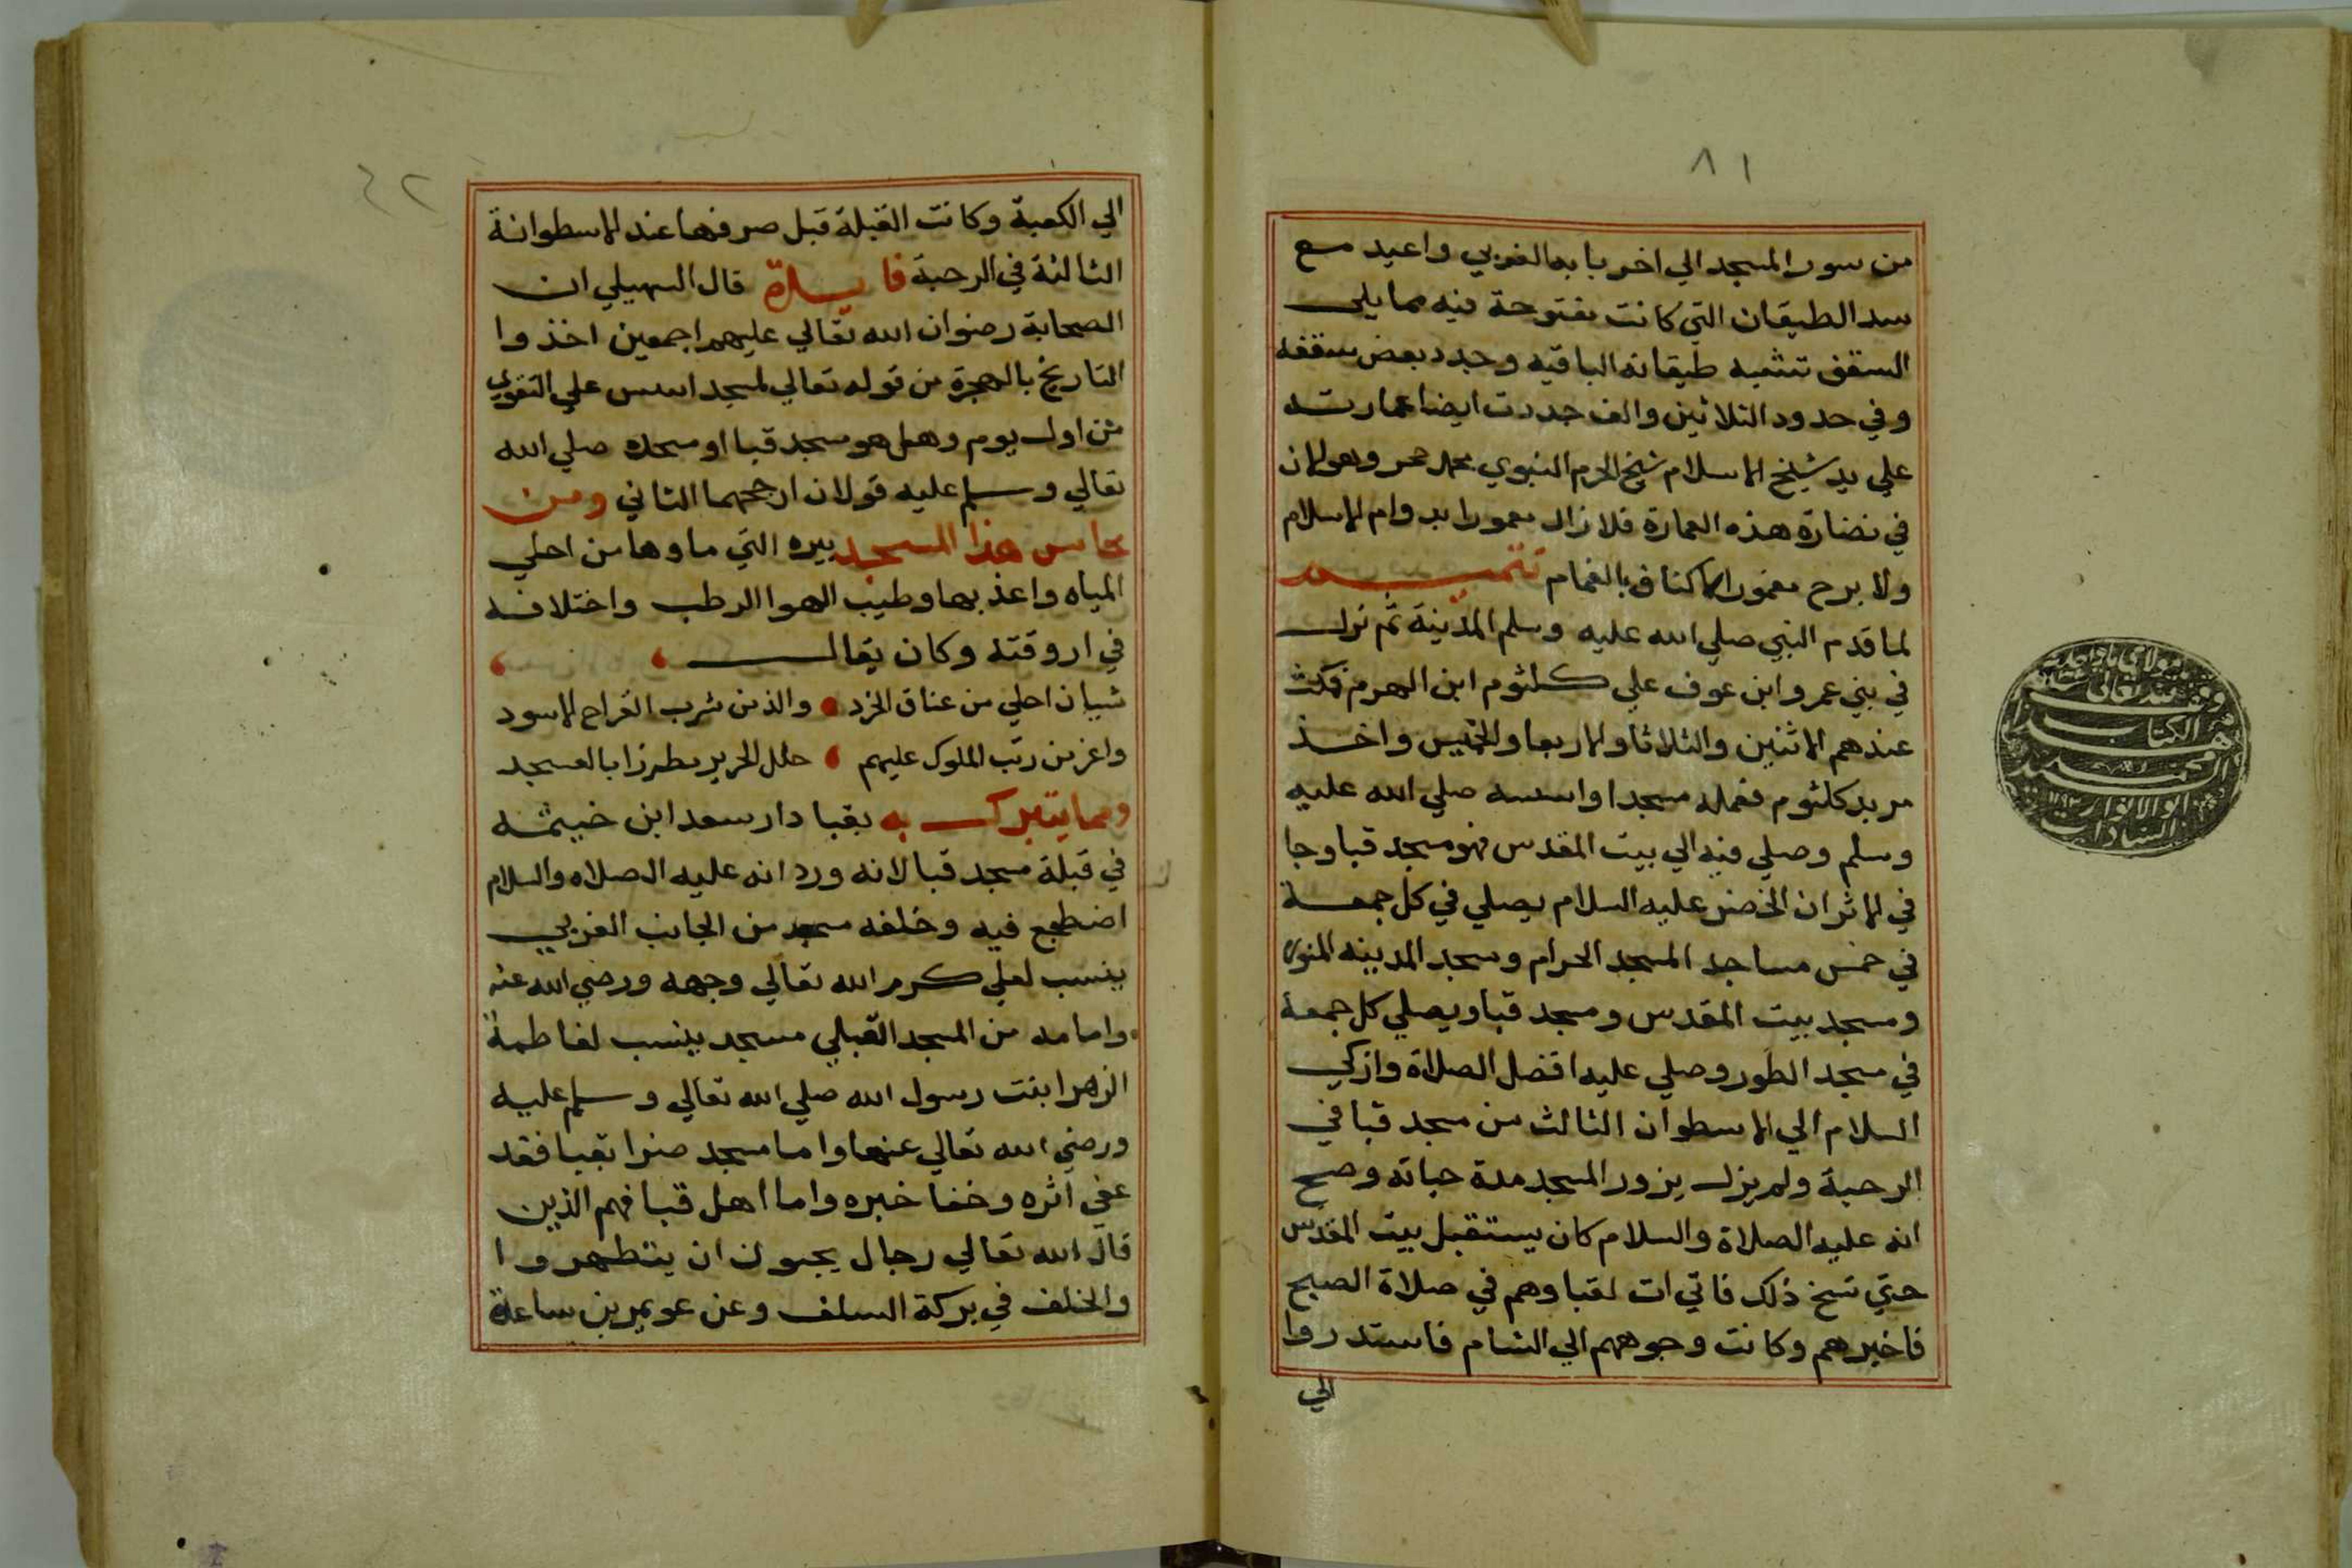 ٨١
من سور المسجد الي اخر بابه الغربي واعيد مع
سد الطيقان التي كانت مفتوحة فيه مما يلي
السقف تتمه طيقانه الباقيه وجدد بعض سقفه
وفي حدود الثلاثين والف جددت ايضا عمارته
علي يد شيخ الاسلام شيخ الحرم النبوي محمد وهو الان
في نضارة هذه العمارة فلا زال معمورا بدوام الاسلام
ولا برح مغمور الاكناف بالغمام تتمه
لما قدم النبي صلي الله عليه وسلم المدينة ثم نزل
في بني عمرو ابن عوف علي كلثوم ابن الهرم فمكث
عندهم الاثنين والثلاثا والاربعا والخميس واخذ
مربد كلثوم فعمله مسجدا واسسه صلي الله عليه
وسلم وصلي فيه الي بيت المقدس فهو مسجد قبا وجا
في الاثر ان الخضر عليه السلام يصلي في كل جمعة
في خمس مساجد المسجد الحرام ومسجد المدينه المنوره
ومسجد بيت المقدس ومسجد قبا ويصلي كل جمعة
في مسجد الطور وصلي عليه افضل الصلاة وازكي
السلام الي الاسطوان الثالث من مسجد قبا في
الرحبة ولم يزل يزور المسجد مدة حياته وصح
انه عليه الصلاة والسلام كان يستقبل بيت المقدس
حتي نسخ ذلك فاتي ات لقبا وهم في صلاة الصبح
فاخبرهم وكانت وجوههم الي الشام فاستدروا
الي
٤٢
الي الكعبة وكانت القبلة قبل صرفها عند الاسطوانة
الثالثة في الرحبة فايدة قال السهيلي ان
الصحابة رضوان الله تعالي عليهم اجمعين اخذوا
التاريخ بالهجرة من قوله تعالي لمسجد اسس علي التقوي
من اول يوم وهل هو مسجد قبا او مسجده صلي الله
تعالي وسلم عليه قولان ارجحهما الثاني ومن
محاسن هذا المسجد بيره التي ماوها من احلي
المياه واعذبها وطيب الهوا الرطب واختلافه
في اروقته وكان يقال
شيان احلي من عناق الخرد والذ من شرب القراح الاسود
واعز من رتب الملوك عليهم حلل الحرير مطرزا بالعسجد
ومما يتبرك به بقبا دار سعد ابن خيثمه
في قبلة مسجد قبا لانه ورد انه عليه الصلاه والسلام
اضطجع فيه وخلفه مسجد من الجانب الغربي
ينسب لعلي كرم الله تعالي وجهه ورضي الله عنه
وامامه من المسجد القبلي مسجد ينسب لفاطمة
الزهرا بنت رسول الله صلي الله تعالي وسلم عليه
ورضي الله تعالي عنها واما مسجد ضرا بقبا فقد
عفي اثره وخفا خبره واما اهل قبا فهم الذين
قال الله تعالي رجال يحبون ان يتطهروا
والخلف في بركة السلف وعن عويمر بن ساعدة